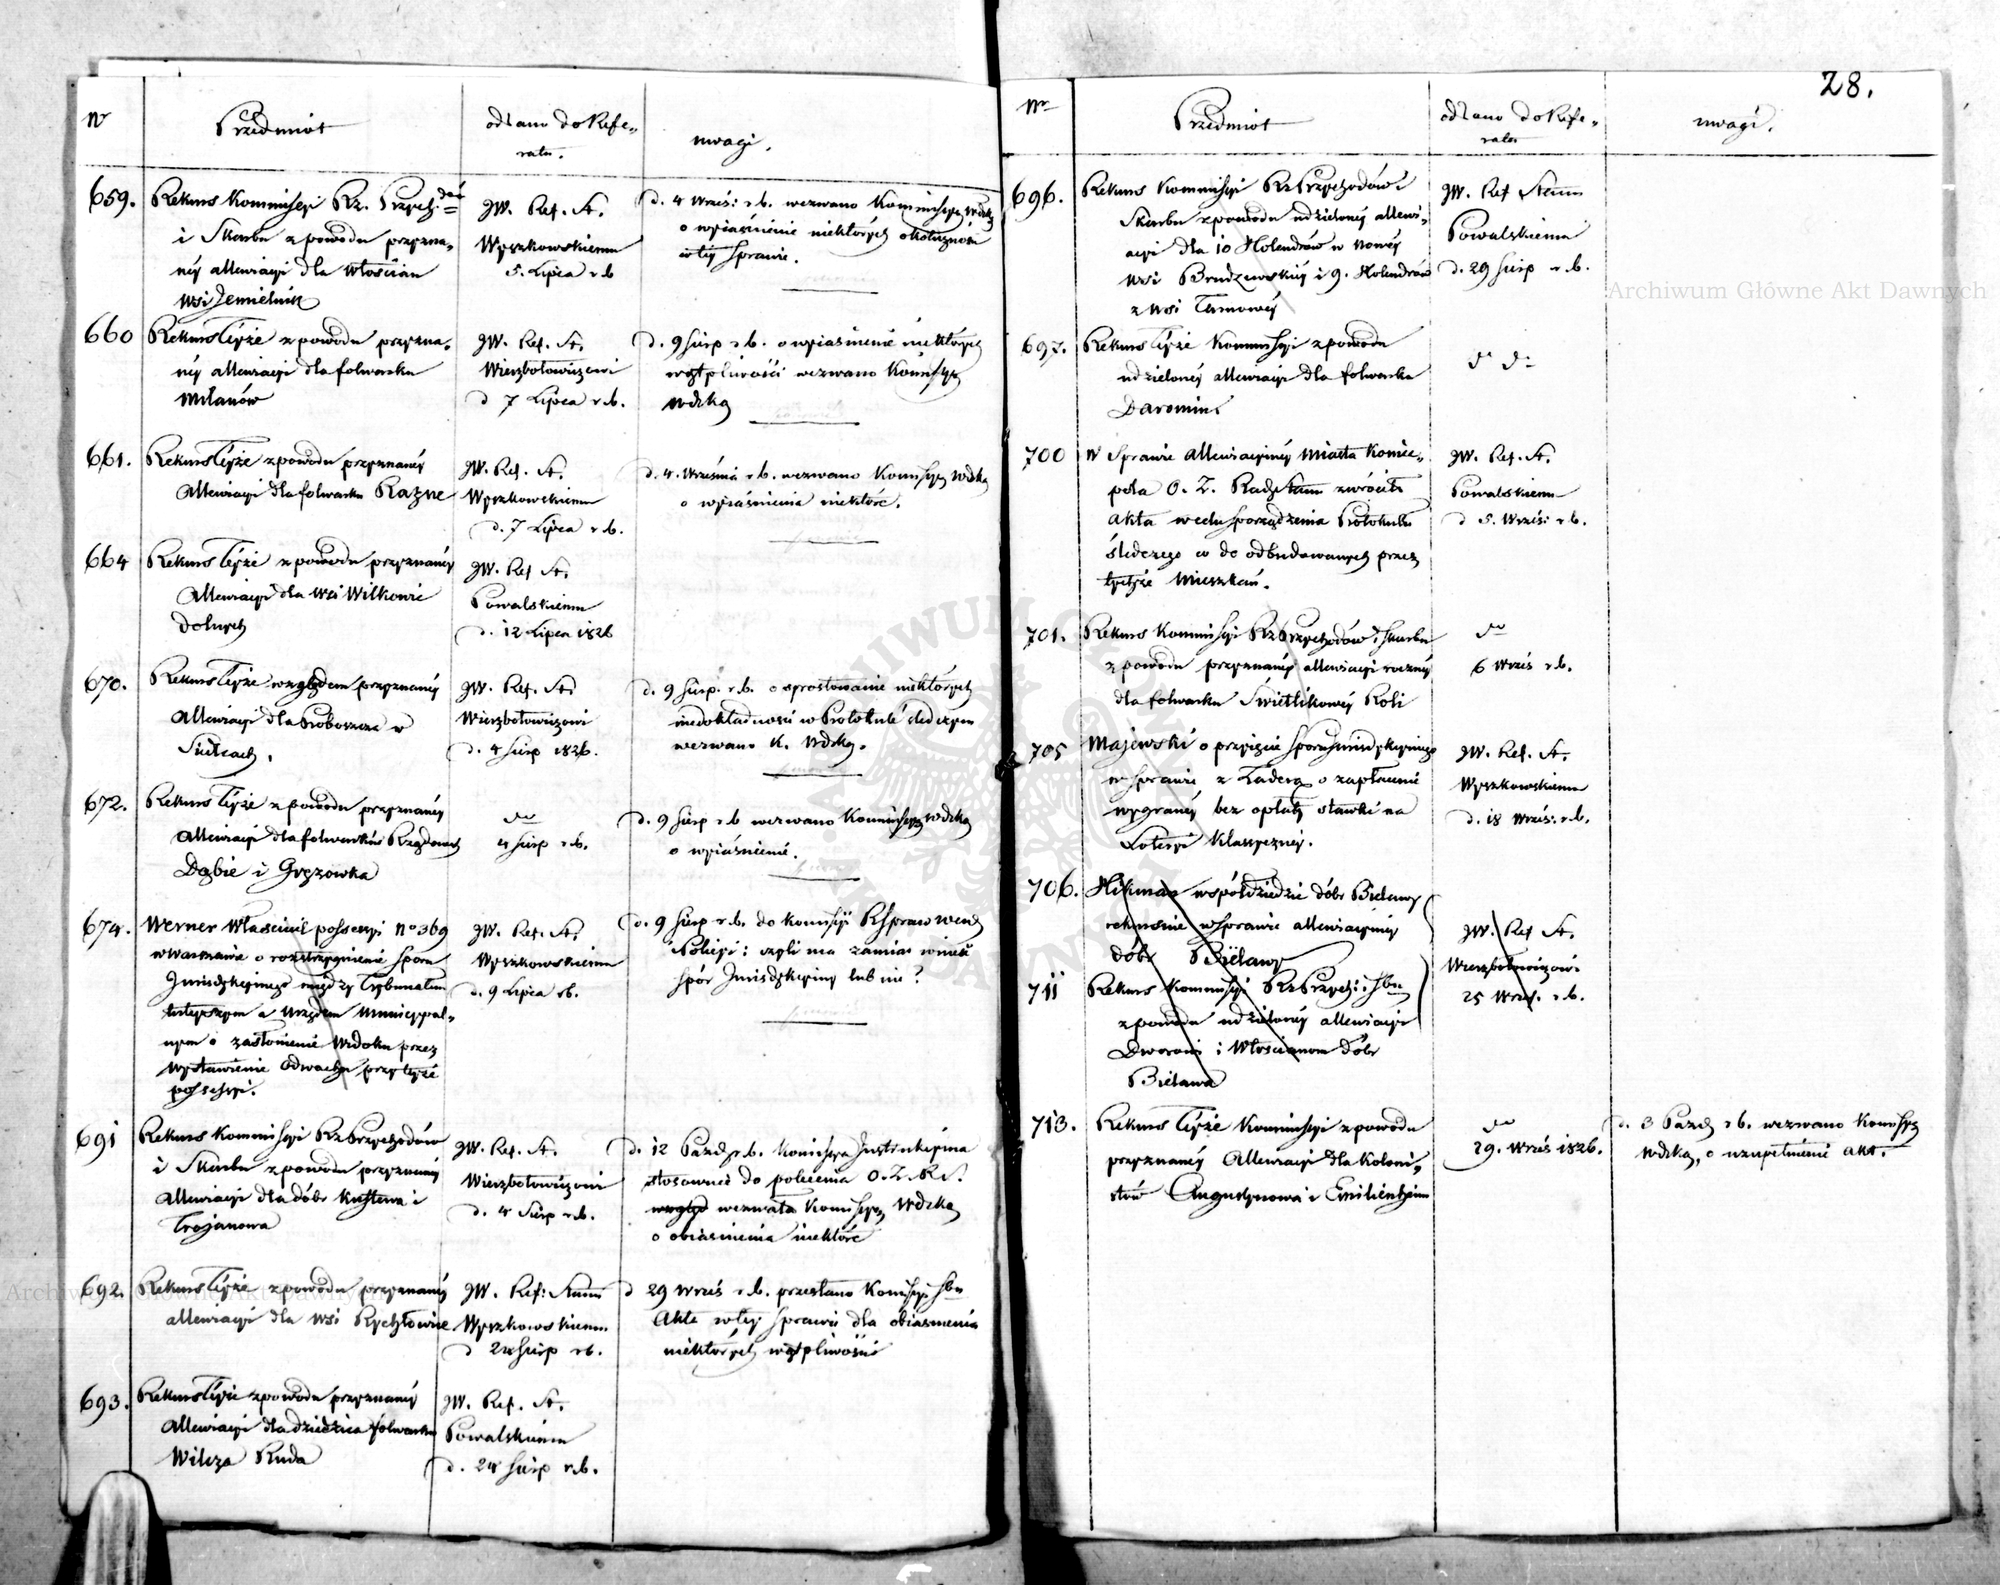 Nr
Przedmiot
oddano do Refe-
ratu.
uwagi.
659.
Rekurs Kommissyi Rz. Przych: dów
i Skarbu z powodu przyzna-
néy allewiacyi dla Włościan
wsi Jemielnik
JW. Ref. St.
Wyszkowskiemu
5. Lipca r.b.
d. 4 Wrześ: r.b. wezwano Kommissyę Wdzką
o wyiaśnienie niektórych okoliczności
w téy sprawie.
660
Rekurs Téyże z powodu przyzna-
néy allewiacyi dla folwarku
Milanów
JW. Ref. St.
Wierzbołowiczowi
d 7 Lipca r.b.
d. 9 Sierp r.b. o wyiaśnienie niektórych
wątpliwości wezwano Kommissyę
Wdzką
661.
Rekurs Téyże z powodu przyznanéy
Allewiacyi dla folwarku Raźne
JW. Ref. St.
Wyszkowskiemu
d. 7 Lipca r.b.
d. 4. Września r.b. wezwano Kommissyę Wdzką
o wyiaśnienia niektóre.
664
Rekurs Téyże z powodu przyznanéy
Allewiacyi dla wsi Wilkowic
Dolnych
JW. Ref St.
Powalskiemu
d. 12 Lipca 1826
670.
Rekurs Téyże względem przyznanéy
Allewiacyi dla Proboszcza w
JW. Ref. St.
Wierzbołowiczowi
d. 4 Sierp 1826.
d. 9 Sierp. r.b. o sprostowanie niektórych
niedokładności w Protokule śledczym
wezwano K. Wdzką.
672.
Rekurs Téyże z powodu przyznanéy
Allewiacyi dla folwarków Rzędowy
Dąbie i Gręzowka
do
4 Sierp r.b.
d. 9 Sierp r.b wezwano Kommissyę Wdzką
o wyiaśnienie.
674.
Werner Właściciel possessyi No 369
w Warszawie o rozstrzygnienie sporu
Jurisdykcyinego między Trybunałem
tuteyszym a Urzędem Municypal-
nym o zasłonienie Widoku przez
wystawienie Odwachu przy téyże
possessyi.
JW. Ref. St.
Wyszkowskiemu
d. 9 Lipca rb.
d. 9 Sierp r.b. do Komissyi R Spraw wew
i Policyi: czyli ma zamiar wnieść
spór Jurisdykcyiny lub nie?
691
Rekurs Kommissyi Rz Przychodów
i Skarbu z powodu przyznanéy
Allewiacyi dla dóbr Kustewa i
Trojanowa
JW. Ref. St.
Wierzbołowiczowi
d. 4 Sierp r.b.
d. 12 Paźdź r.b. Komissya Instrukcyina
stosownie do polecenia O. Z. R. S.
wezwała Kommissyę Wdzką
o obiaśnienia niektóre
692.
Rekurs Téyże z powodu przyznanéy
allewiacyi dla wsi Rychłowic
JW. Ref: Stanu
Wyszkowskiemu
d 24 Sierp rb.
d 29 Wrześ r.b. przesłano Komissyi Sbu
Akta w téy sprawie dla obiaśnienia
niektórych wątpliwości
693.
Rekurs Téyże z powodu przyznanéy
Allewiacyi dla dziedzica folwarku
Wilcza Ruda
JW. Ref. St.
Powalskiemu
d. 24 Sierp r.b.
28.
Nr
Przedmiot
oddano do Refe-
ratu
uwagi.
696.
Rekurs Kommissyi Rz Przychodów i
Skarbu z powodu udzielonéy allewi-
acyi dla 10 Holendrów w Nowéy
wsi Brudzewskiéy i 9. Holendrów
z wsi Tarnowéy
JW. Ref Stanu
Powalskiemu
d. 29 Sierp r.b.
697.
Rekurs Téyże Kommissyi z powodu
udzielonéy allewiacyi dla folwarku
Daromin
do do
700
W Sprawie Allewiacyinéy miasta Koniec-
pola O. Z. Rady Stanu zwróciło
Akta w celu sporządzenia Protokułu
śledczego co do odbudowanych przez
tychże Mieszkań.
JW. Ref. St.
Powalskiemu
d 5. Wrześ: r.b.
701.
Rekurs Kommissyi Rz Przychodów i Skarbu
z powodu przyznanéy allewiacyi roczney
dla folwarku Świetlikowéy Roli
do
6 Wrześ r.b.
705
Majewski o przyięcie sporu Jurisdykcyinego
w sprawie z Laderą o zapłacenie
wygranéy bez opłaty stawki na
Loteryi Klassycznéy.
JW. Ref. St.
Wyszkowskiemu
d. 18 Wrześ: r.b.
706.
współdziedzic dóbr Bielawy
rekursuie w sprawie allewiacyinéy
dóbr Bielawy
711
Rekurs Kommissyi Rz Przych: i Sbu
z powodu udzielonéy allewiacyi
Dworowi i Włościanom dóbr
Bielawa
JW. Ref St.
Wierzbołowiczowi
25 Wrześ. r.b.
713.
Rekurs Téyże Kommissyi z powodu
przyznanéy Allewiacyi dla Koloni-
stów Augustynowa i Emilienheim
do
29. Wrześ 1826.
d. 3 Paźdz r.b. wezwano Komissyę
Wdzką, o uzupełnienie Akt.
Archiwum Główne Akt Dawnych
Archiwum Główne Akt Dawnych